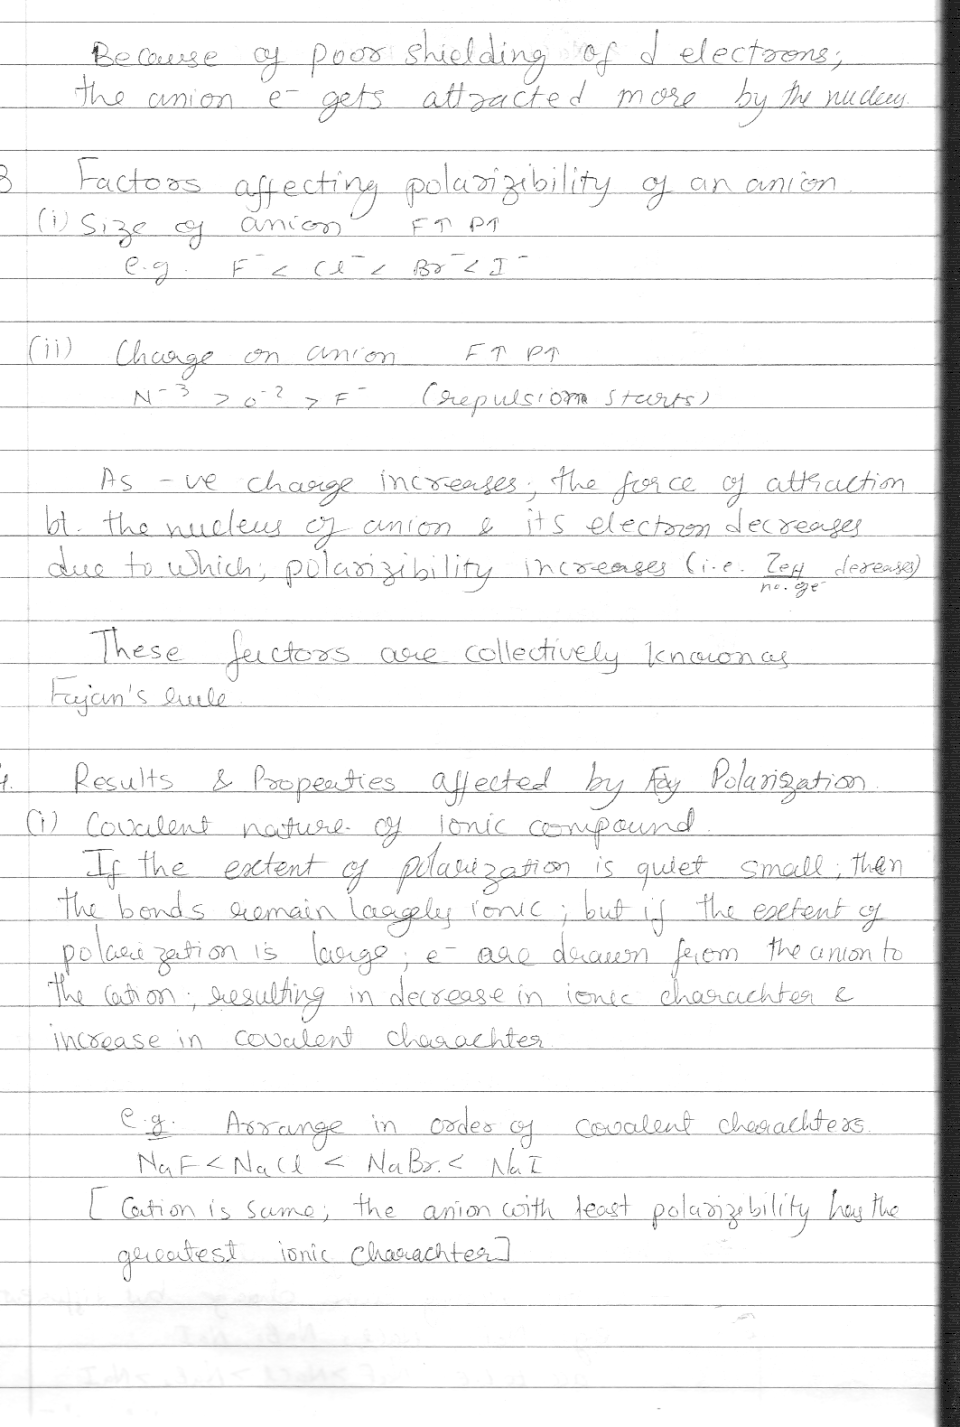 Because of poor shielding of d electrons;
the anion e- gets attracted more by the nucleus.
3 Factors affecting polarizibility of an anion
(i) Size of anion F↑ P↑
e.g. F⁻ < Cl⁻ < Br⁻ < I⁻
(ii) Charge on anion F↑ P↑
N⁻³ > O⁻² > F⁻ (repulsion starts)
As -ve charge increases; the force of attraction
bt. the nucleus of anion & its electron decreases
due to which; polarizibility increases (i.e. Zeff decreases)
no. of e-
These factors are collectively known as
Fajan's rule
4. Results & Properties affected by Polarization
(i) Covalent nature of ionic compound.
If the extent of polarization is quiet small; then
the bonds remain largely ionic; but if the extent of
polarization is large; e- are drawn from the anion to
the cation; resulting in decrease in ionic charachter &
increase in covalent charachter
e.g. Arrange in order of covalent charachters.
NaF < NaCl < NaBr. < NaI
[Cation is same; the anion with least polarizibility has the
greatest ionic charachter]